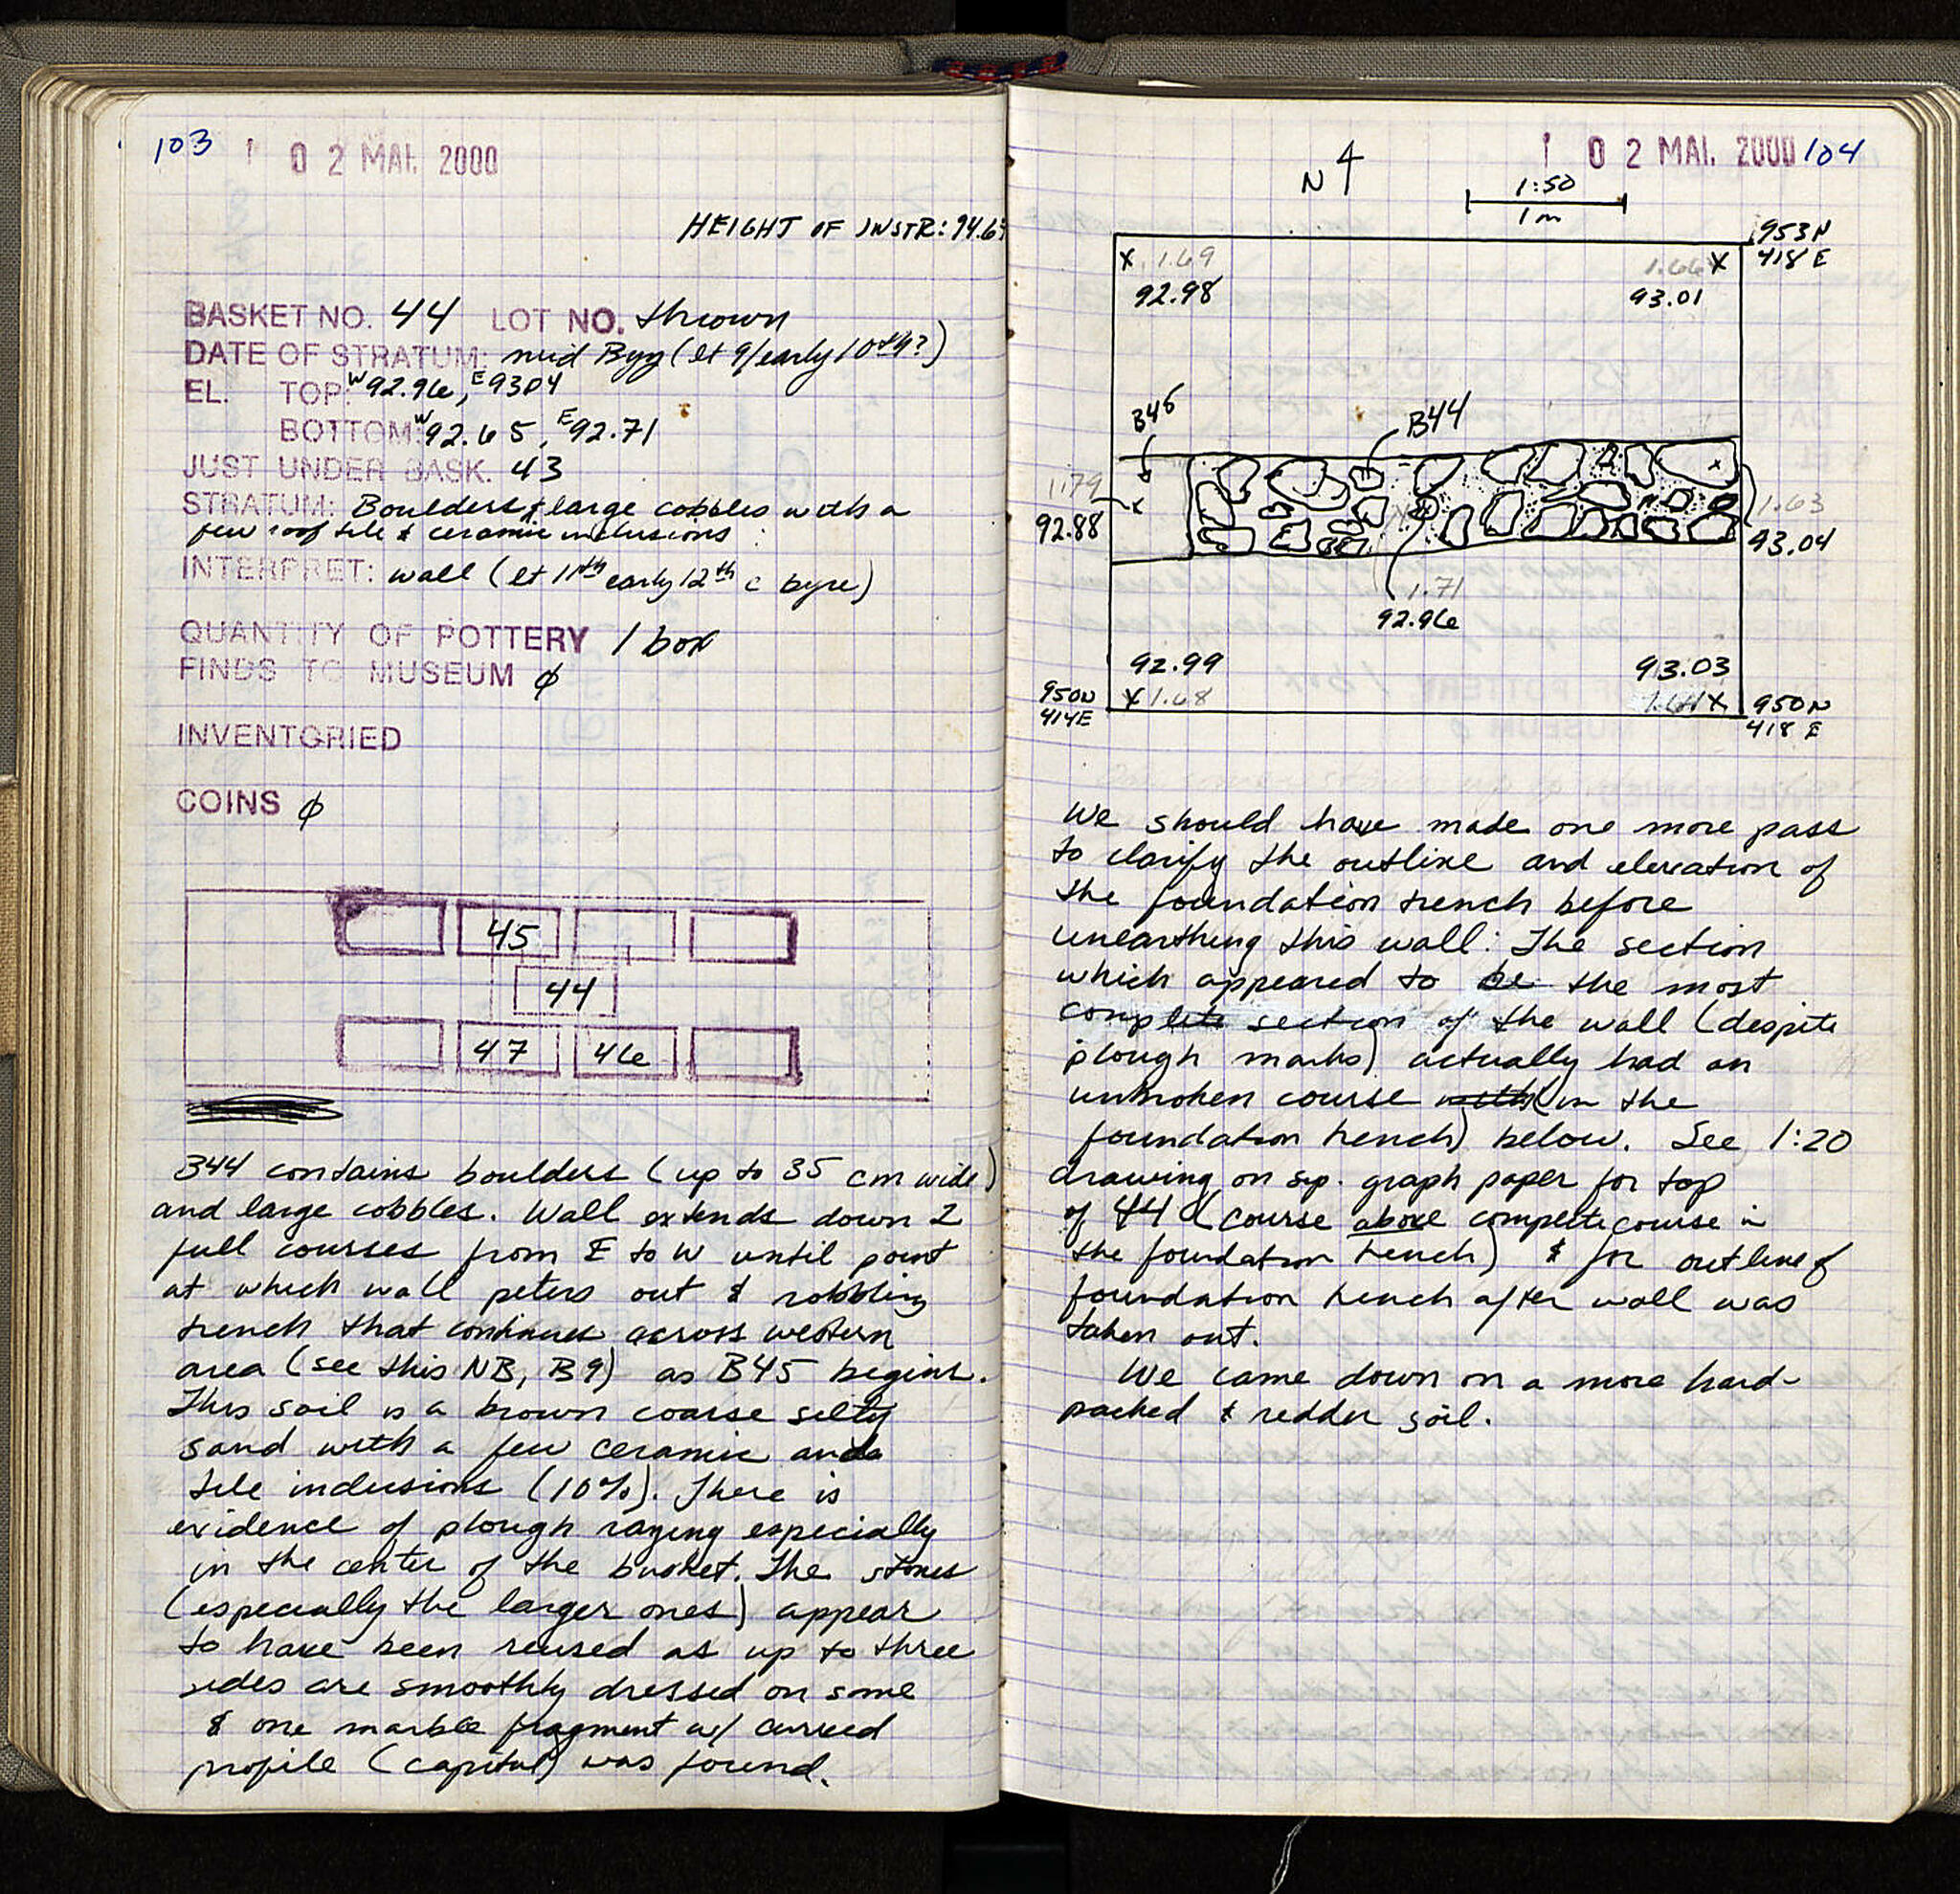 103
02 MAI. 2000
HEIGHT OF INSTR: 94.67
BASKET NO. 44 LOT NO. thrown
DATE OF STRATUM: mid Byz (lt 9/early 10th?)
EL. TOP: W 92.96, E 93.04
BOTTOM: W 92.65, E 92.71
JUST UNDER BASK. 43
STRATUM: Boulders & large cobbles with a
few roof tile & ceramic inclusions
INTERPRET: wall (lt 11th early 12th c byz)
QUANTITY OF POTTERY 1 box
FINDS TO MUSEUM ∅
INVENTORIED
COINS ∅
45
44
47 46
B44 contains boulders (up to 35 cm wide)
and large cobbles. Wall extends down 2
full courses from E to W until point
at which wall peters out & robbing
trench that continues across western
area (see this NB, B9) as B45 begins.
This soil is a brown coarse silty
sand with a few ceramic and
tile inclusions (10%). There is
evidence of plough razing especially
in the center of the basket. The stones
(especially the larger ones) appear
to have been reused as up to three
sides are smoothly dressed on some
& one marble fragment w/ curved
profile (capital) was found.
02 MAI. 2000 104
N
1:50
1m
953N
418 E
X 1.69
1.66 X
92.98
93.01
B45
B44
1.79
92.88
1.63
93.04
1.71
92.96
92.99
93.03
950N
414E
X 1.68
1.64 X
950N
418 E
We should have made one more pass
to clarify the outline and elevation of
the foundation trench before
unearthing this wall: The section
which appeared to be the most
complete section of the wall (despite
plough marks) actually had an
unbroken course (in the
foundation trench) below. See 1:20
drawing on sep. graph paper for top
of 44 (course above complete course in
the foundation trench) & for outline of
foundation trench after wall was
taken out.
We came down on a more hard-
packed & redder soil.